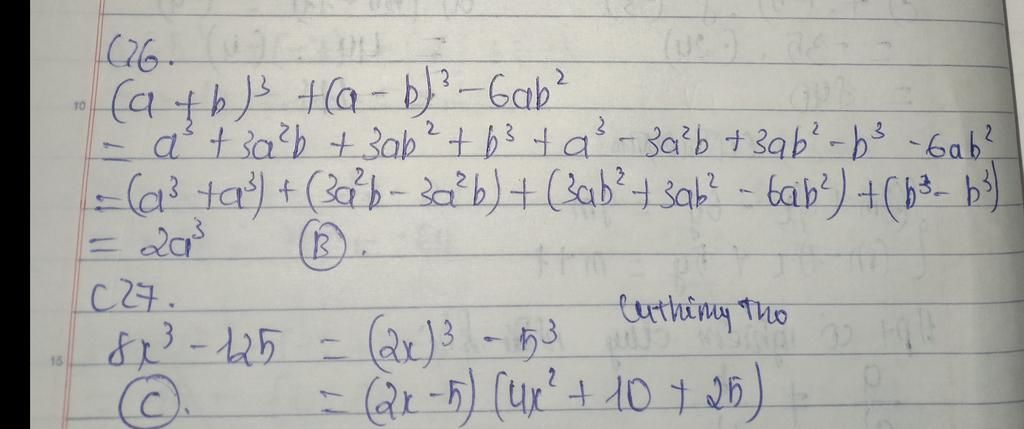 C26.
10 (a + b)³ + (a - b)³ - 6ab²
= a³ + 3a²b + 3ab² + b³ + a³ - 3a²b + 3ab² - b³ - 6ab²
= (a³ + a³) + (3a²b - 3a²b) + (3ab² + 3ab² - 6ab²) + (b³ - b³)
= 2a³ (B).
C27.
8x³ - 125 = (2x)³ - 5³
15
(C). = (2x - 5) (4x² + 10 + 25)